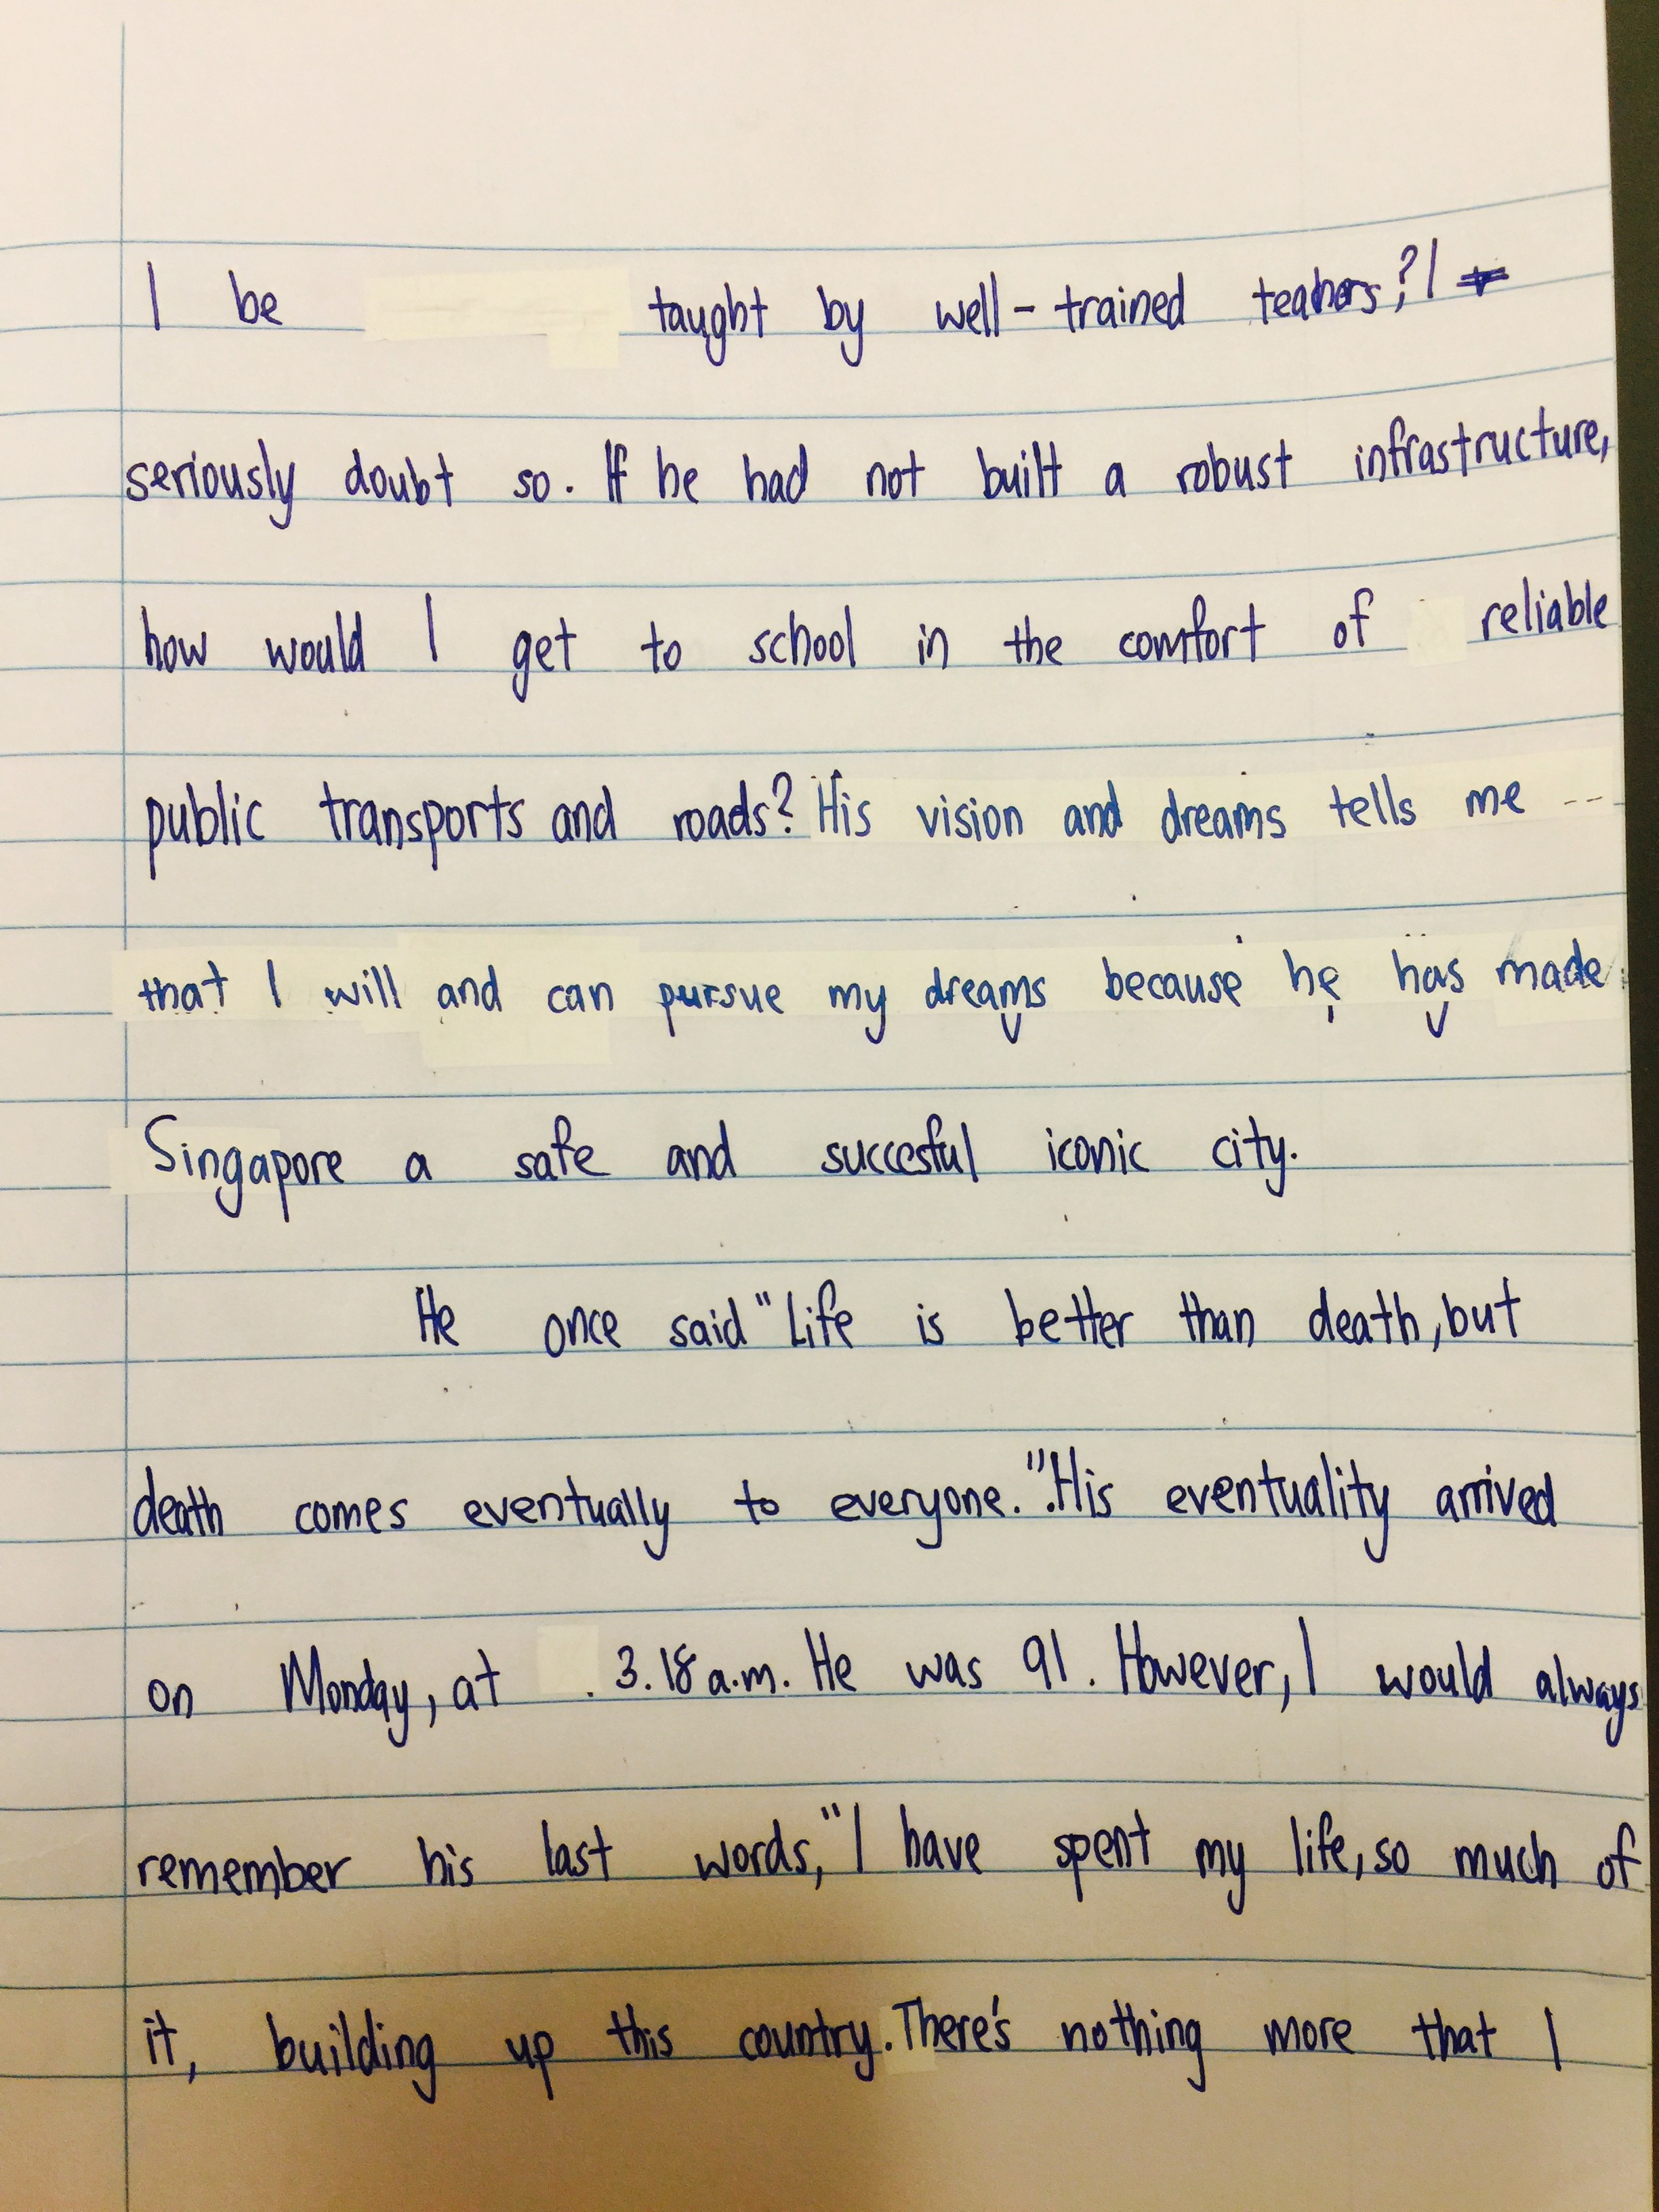 I be taught by well-trained teahers? I
seriously doubt so. If he had not built a robust infrastructure,
how would I get to school in the comfort of reliable
public transports and roads? His vision and dreams tells me
that I will and can pursue my dreams because he has made
Singapore a safe and succesful iconic city.
He once said "Life is better than death, but
death comes eventually to everyone." His eventuality arrived
on Monday, at 3.18 a.m. He was 91. However, I would always
remember his last words, "I have spent my life, so much of
it, building up this country. There's nothing more that I